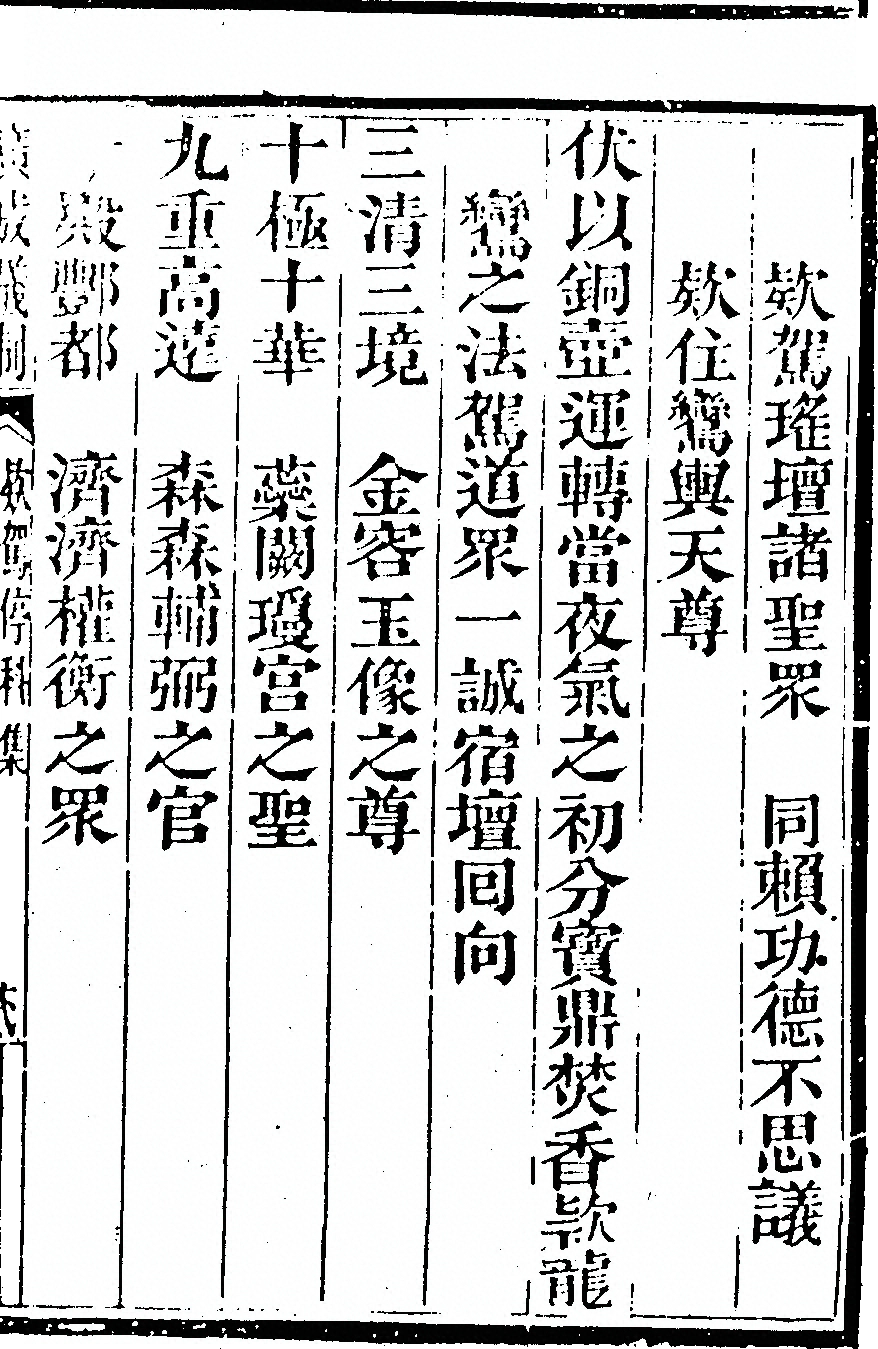 欵駕瑤壇諸聖眾　同賴功德不思議
欵住鸞輿天尊
伏以銅壺運轉當夜氣之初分寶鼎焚香欵龍
鸞之法駕道眾一誠宿壇囘向
三清三境　金容玉像之尊
十極十華　蘂闕瓊宮之聖
九重高遠　森森輔弼之官
殿酆都　濟濟權衡之眾
廣成儀制　欵駕停科集